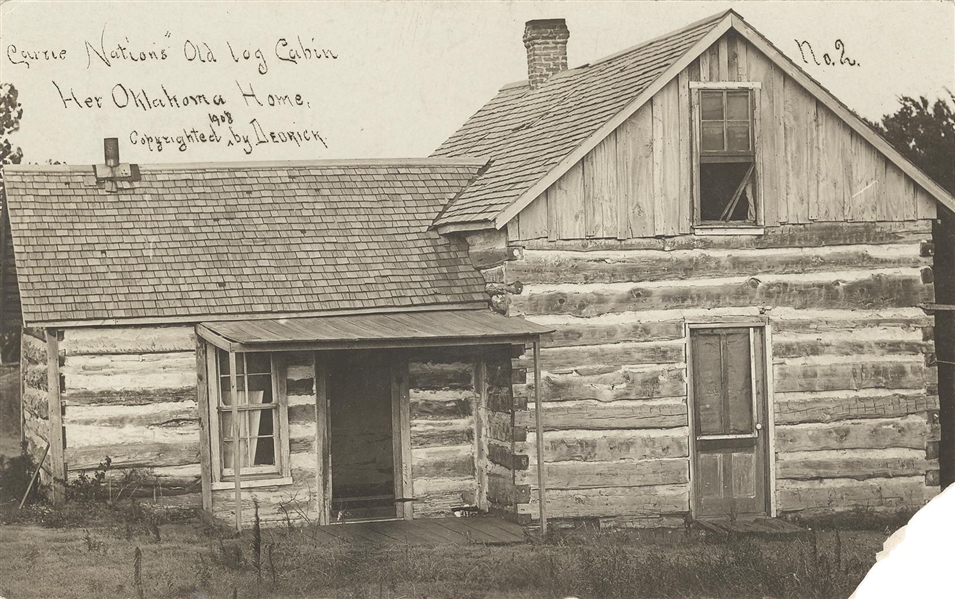 Carrie Nations" Old log Cabin
Her Oklahoma Home,
1908
Copyrighted by DEDRICK.
No. 2.